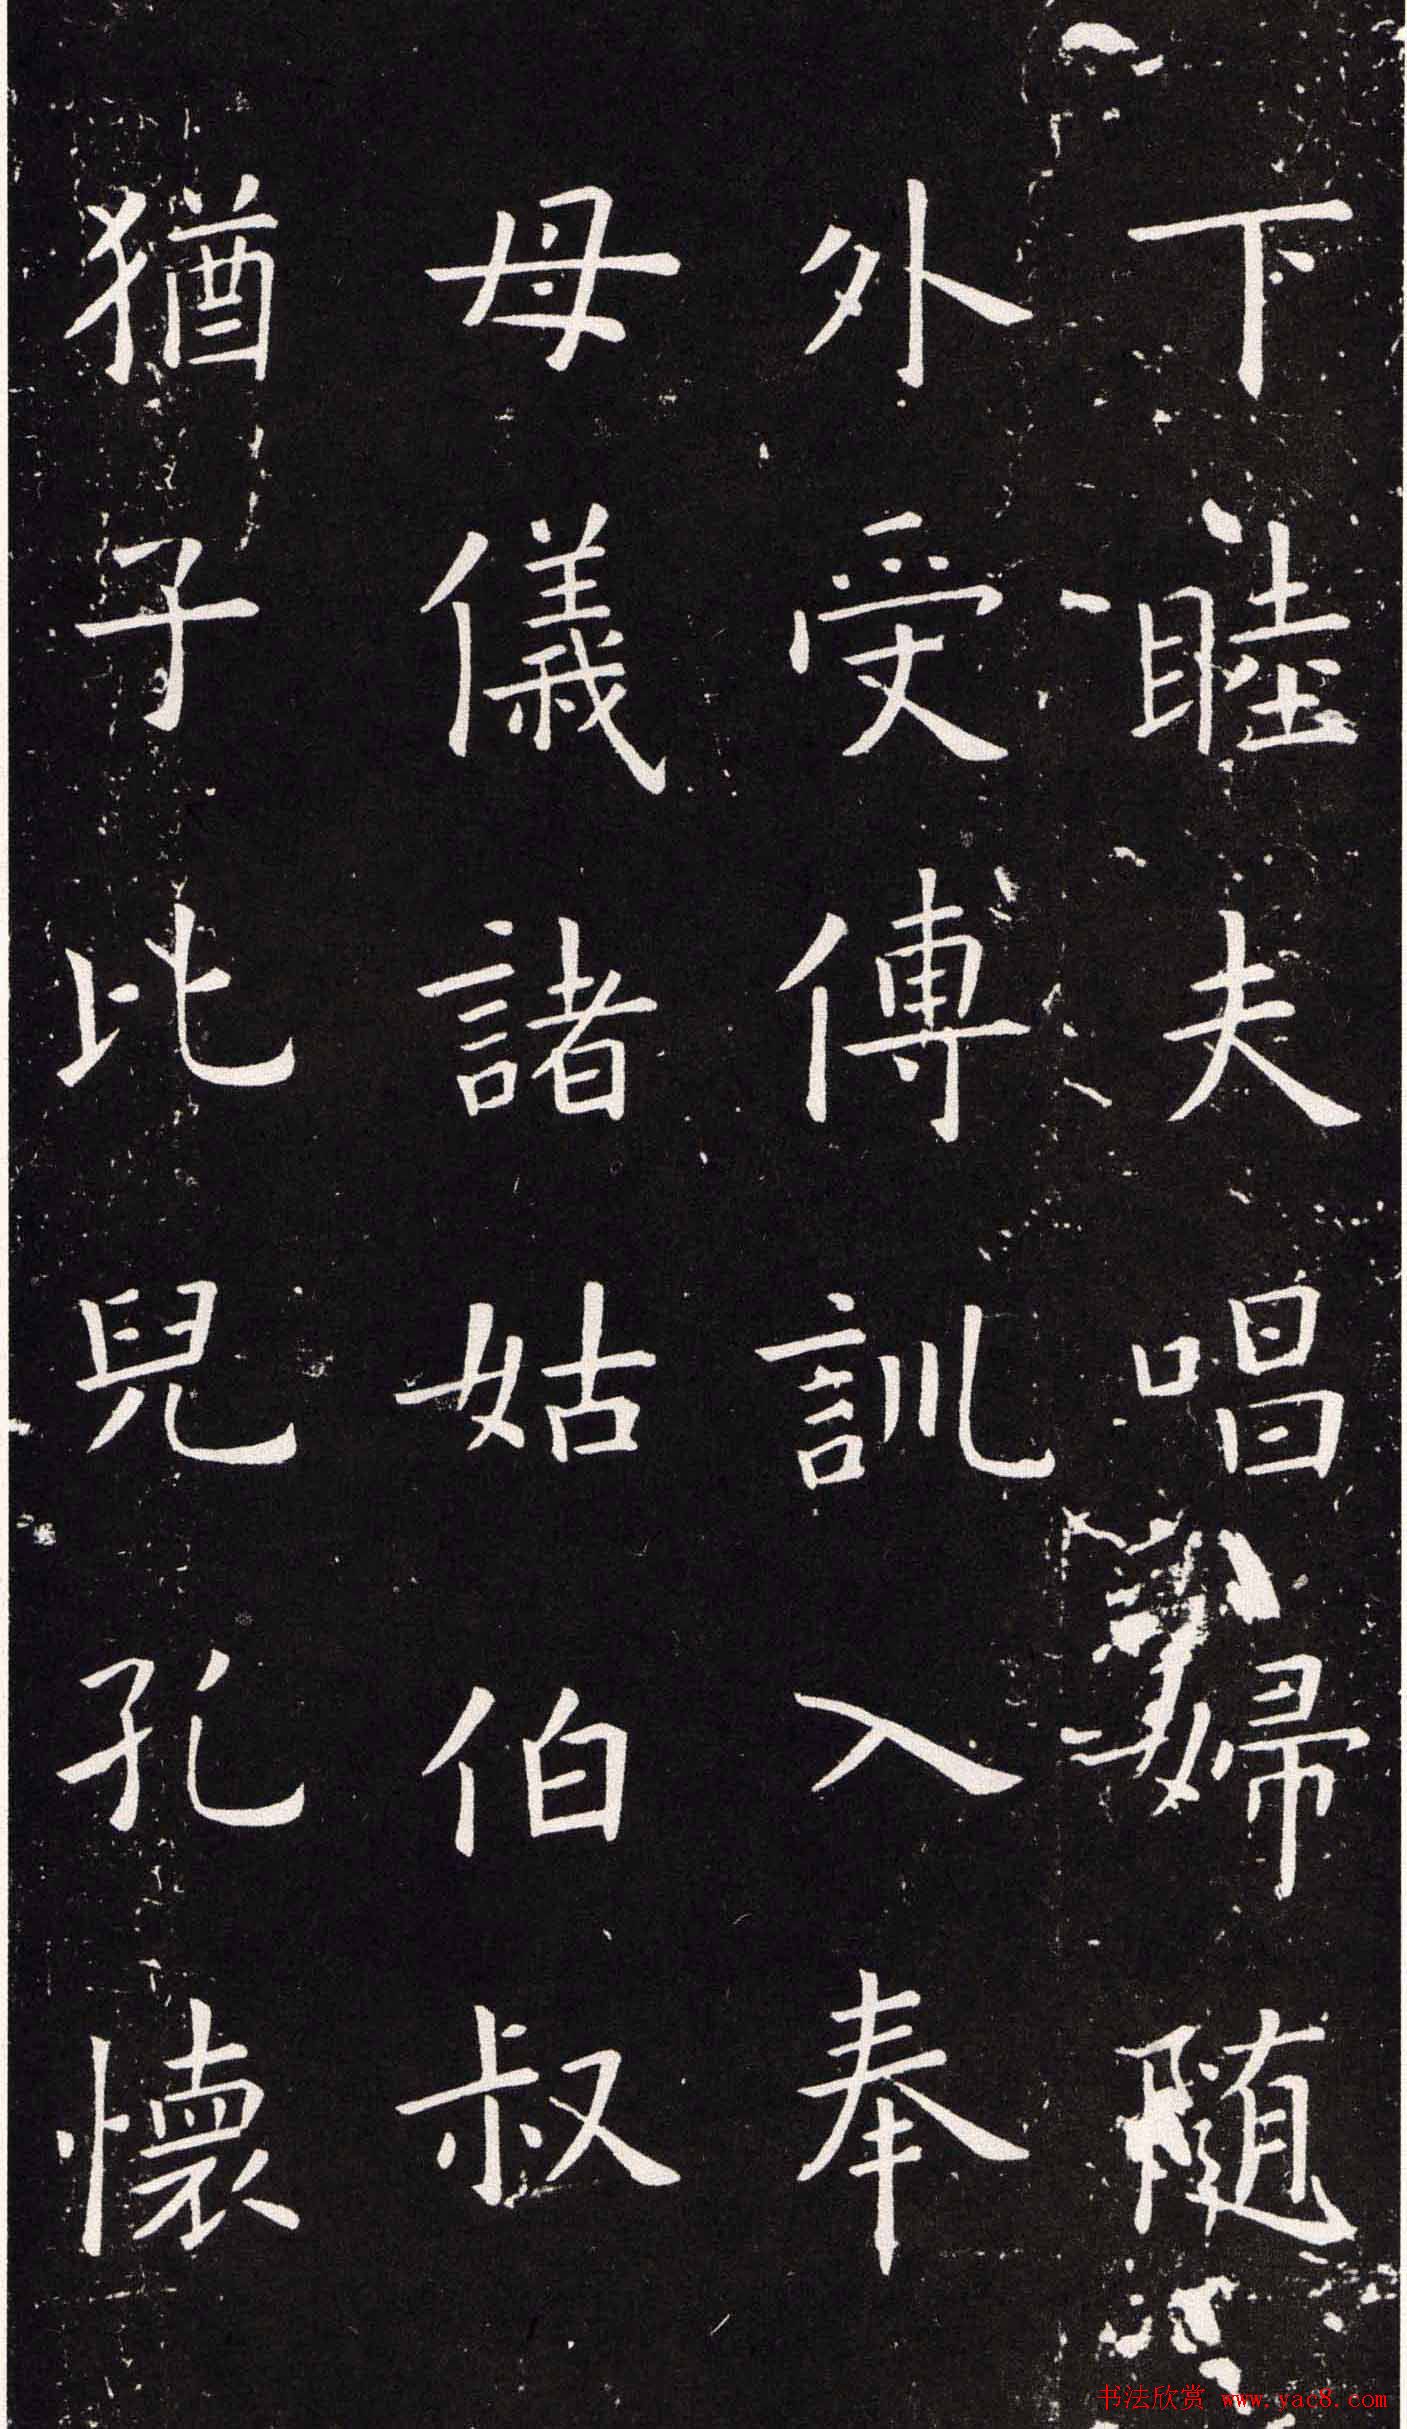 下睦夫唱婦随
外受傅訓入奉
母儀諸姑伯叔
猶子比兒孔懐
书法欣赏 www.yac8.com